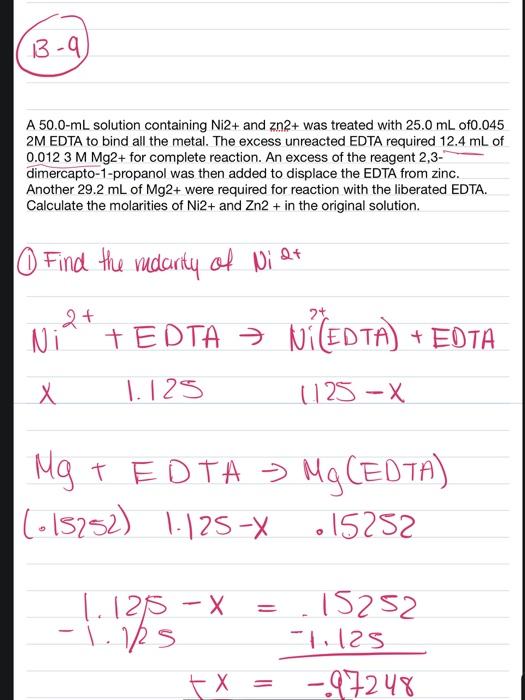 13-9
A 50.0-mL solution containing Ni2+ and zn2+ was treated with 25.0 mL of0.045
2M EDTA to bind all the metal. The excess unreacted EDTA required 12.4 mL of
0.012 3 M Mg2+ for complete reaction. An excess of the reagent 2,3-
dimercapto-1-propanol was then added to displace the EDTA from zinc.
Another 29.2 mL of Mg2+ were required for reaction with the liberated EDTA.
Calculate the molarities of Ni2+ and Zn2 + in the original solution.
① Find the molarity of Ni 2+
Ni 2+ + EDTA → Ni 2+ (EDTA) + EDTA
X 1.125 1.125 - X
Mg + EDTA → Mg(EDTA)
(.15252) 1.125-X .15252
1.125 - X = .15252
-1.125 -1.125
+X = -.97248